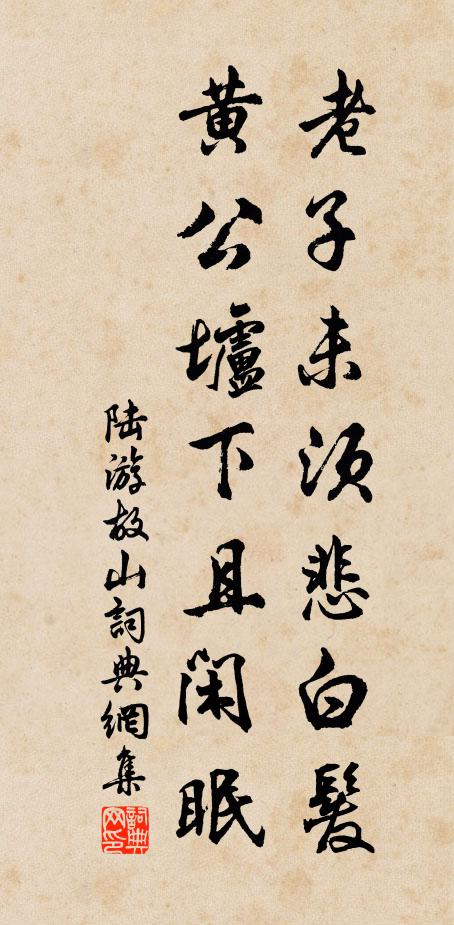 老子未須悲白髮
黃公壚下且閑眠
陸游故山詞典網集
詞典網印